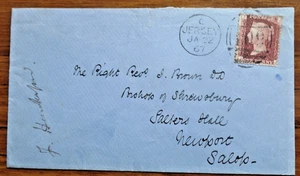 C
JERSEY
JA 22
67
The Right Revd J. Brown DD
Bishop of Shrewsbury
Salters Hall
Newport
Salop.